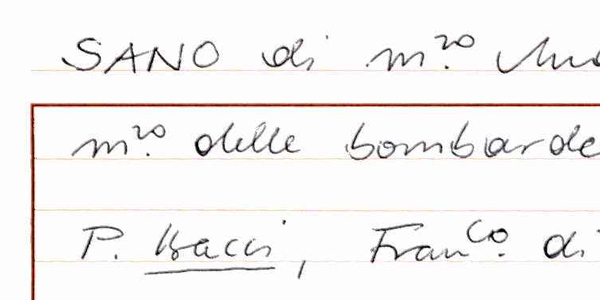 SANO di m.ro
m.ro delle bombarde
P. Bacci, Fran.co di